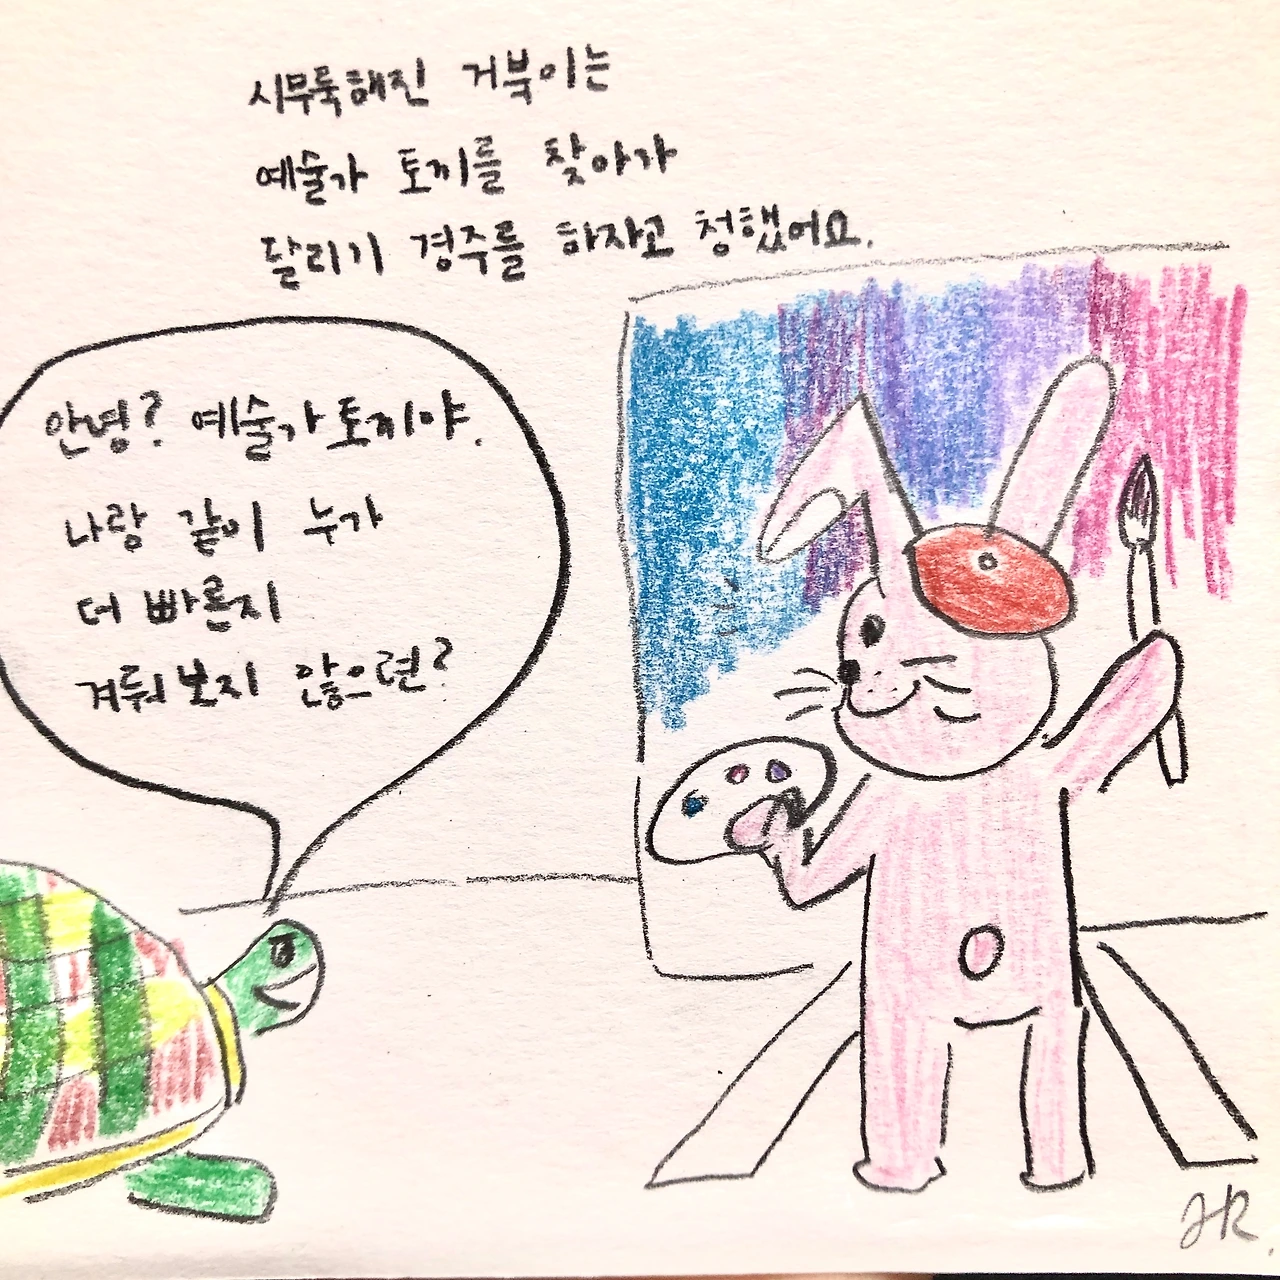 시무룩해진 거북이는
예술가 토끼를 찾아가
달리기 경주를 하자고 청했어요.
안녕? 예술가토끼야.
나랑 같이 누가
더 빠른지
겨뤄보지 않으련?
JR.